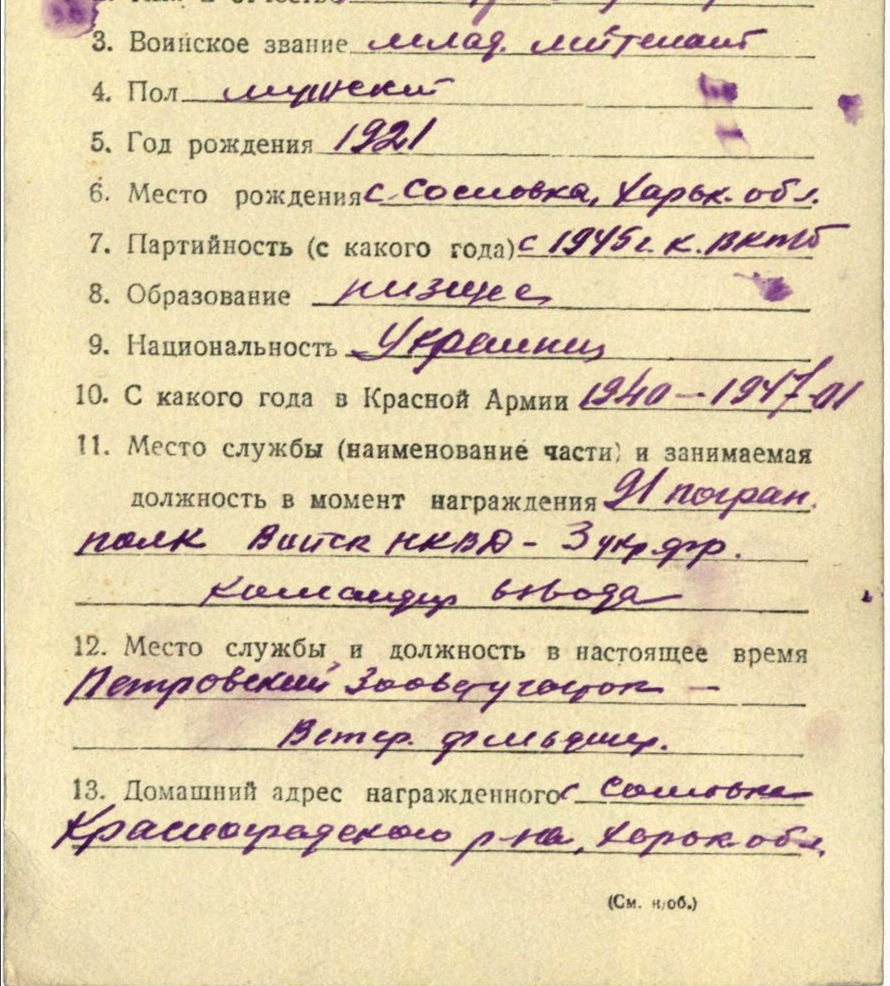 3. Воинское звание млад. лейтенант
4. Пол мужской
5. Год рождения 1921
6. Место рождения с. Сосновка, Харьк. обл.
7. Партийность (с какого года) с 1945 г. к. ВКПб
8. Образование низшее
9. Национальность Украинец
10. С какого года в Красной Армии 1940 - 1947
11. Место службы (наименование части) и занимаемая
должность в момент награждения 91 погран.
полк Войск НКВД - 3 укр. фр.
командир взвода
12. Место службы и должность в настоящее время
Петровский Зооветучасток -
Ветер. фельдшер.
13. Домашний адрес награжденного с Сосновка
Красноградского р-на, Харьк. обл.
(См. н/об.)